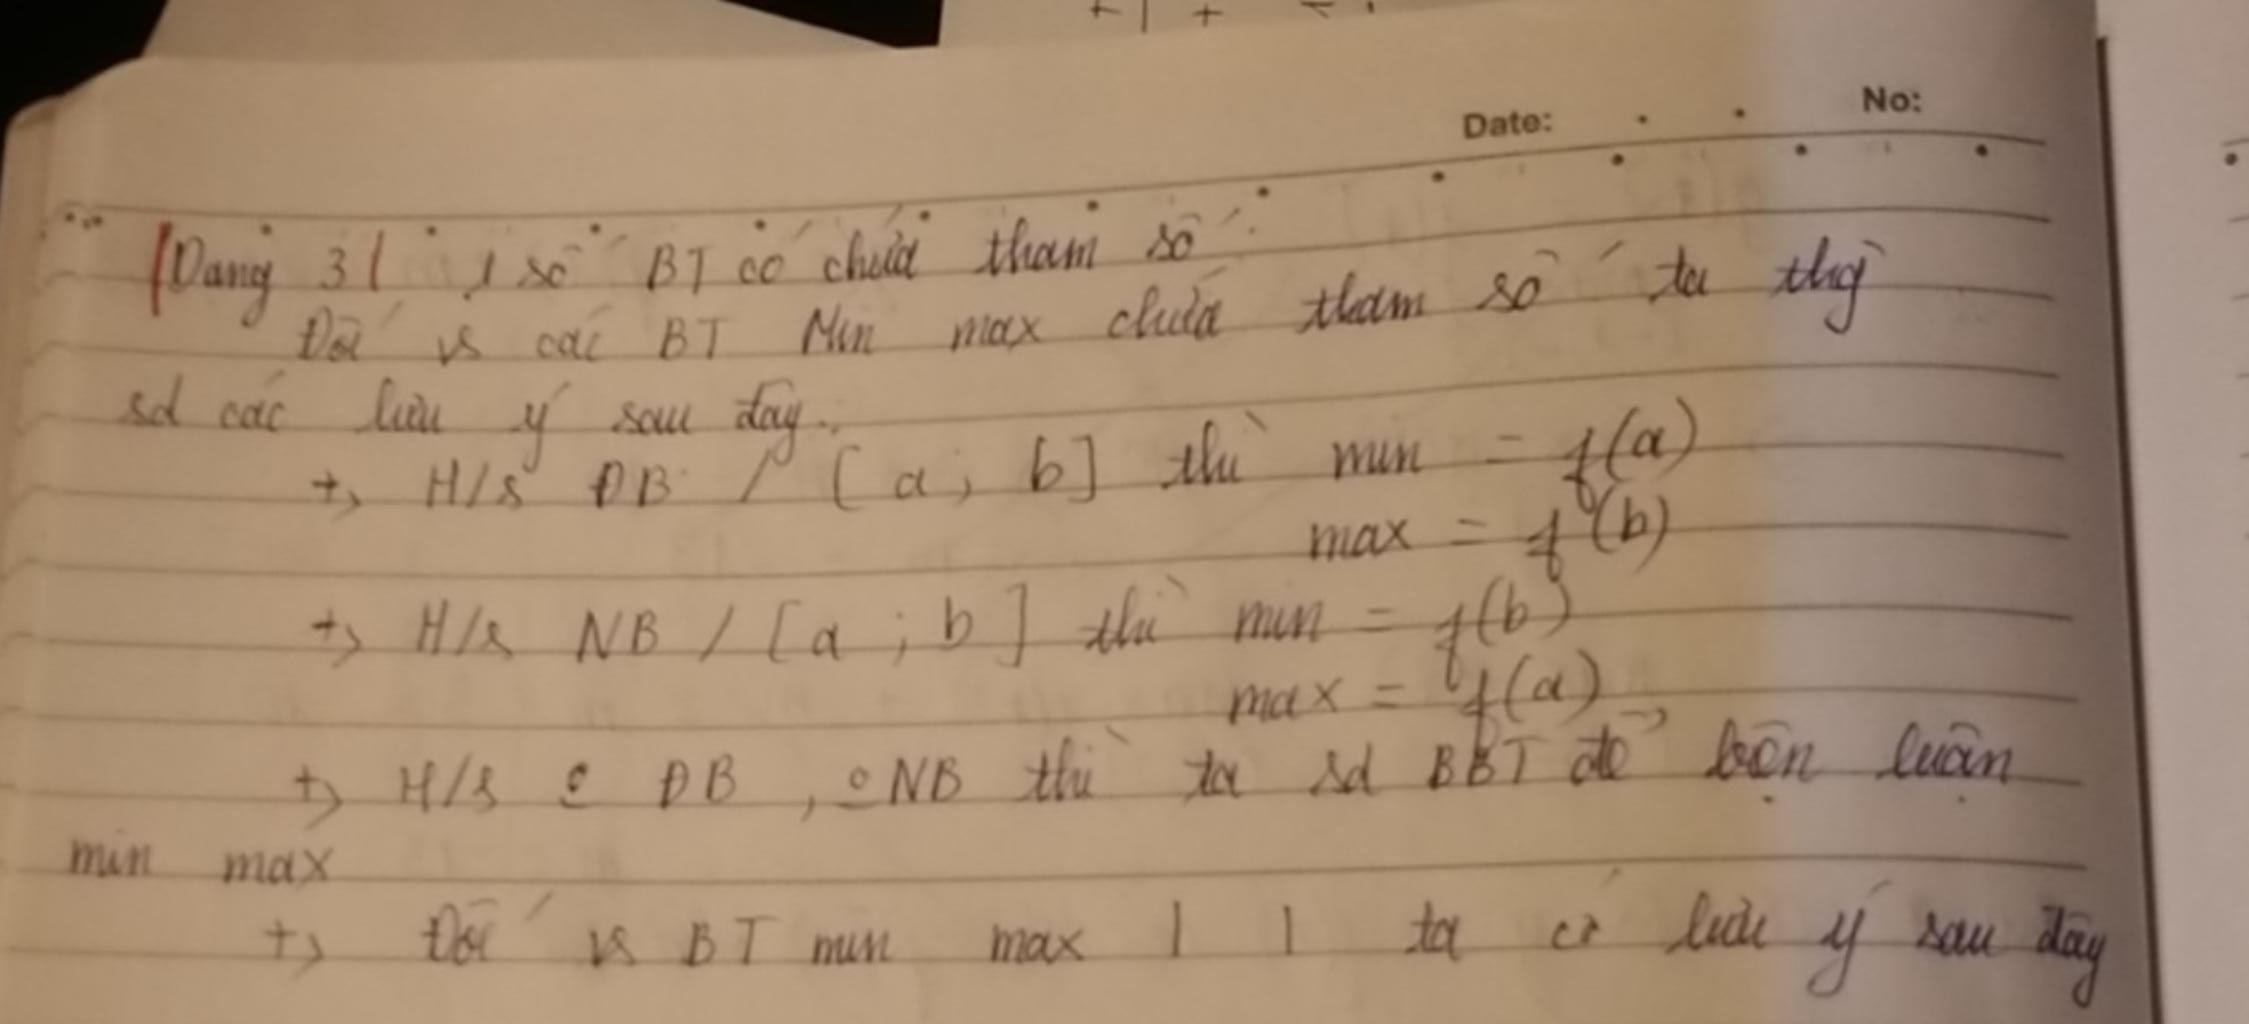 Date: No:
Dạng 3 1 số BT có chứa tham số:
Đối vs các BT Min max chứa tham số ta thg
sd các lưu ý sau đây.
+> H/s ĐB / [a; b] thì min = f(a)
max = f(b)
+> H/s NB / [a; b] thì min = f(b)
max = f(a)
+> H/s ĐB, NB thì ta sd BBT để biện luận
min max
+> Đối vs BT min max | | ta có lưu ý sau đây